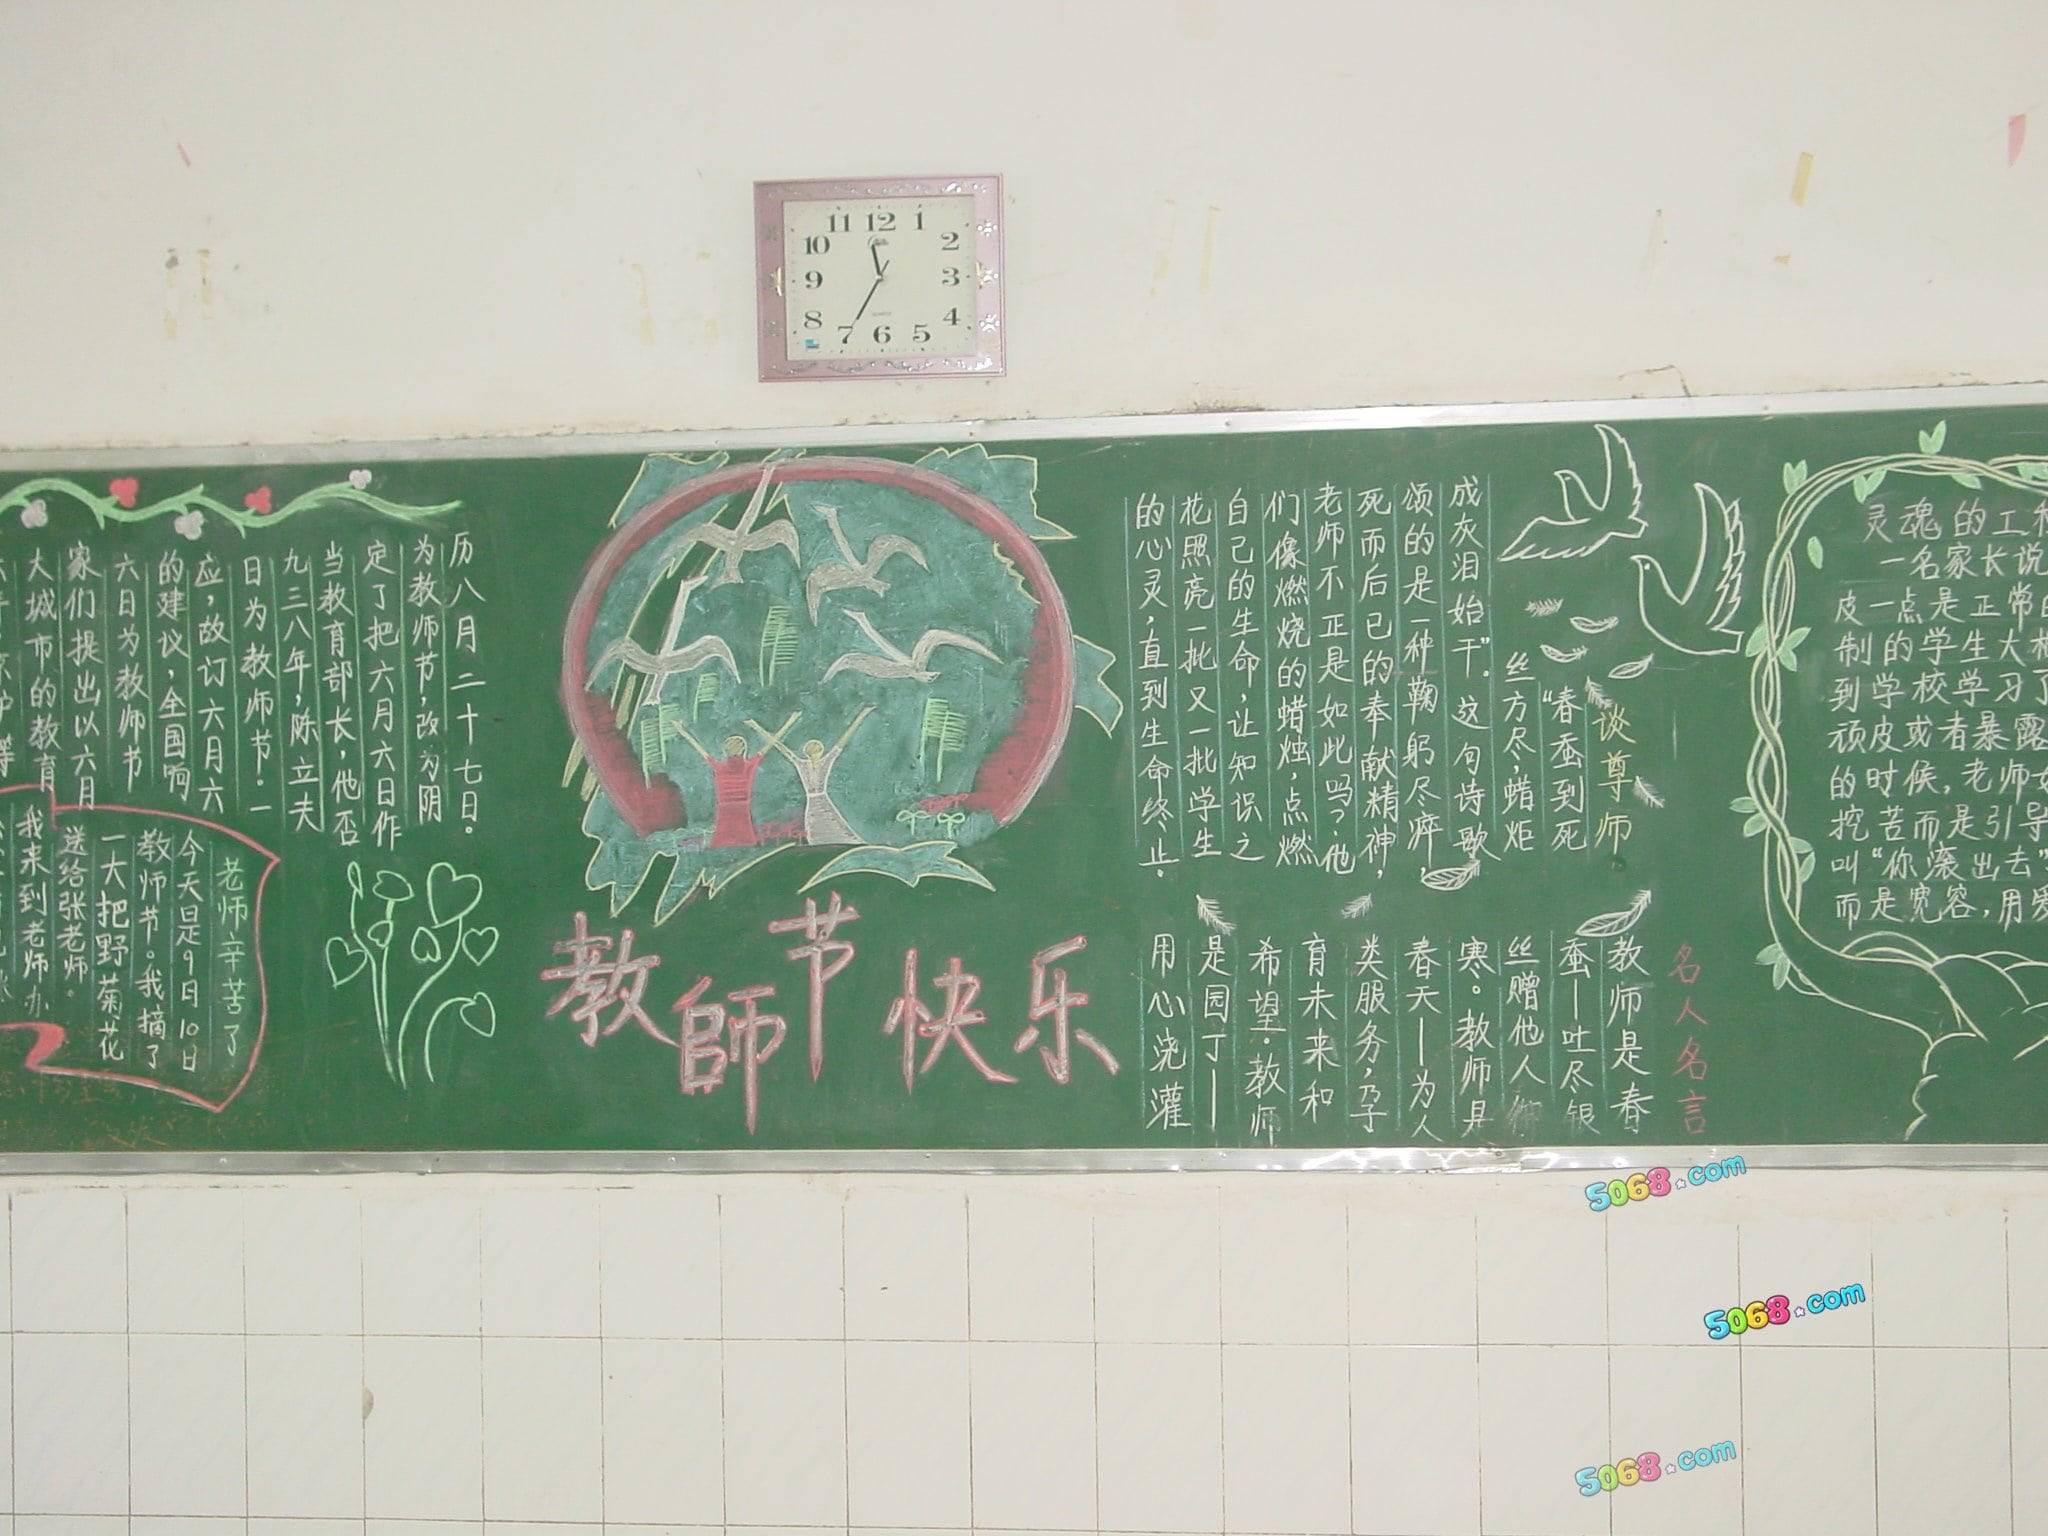 11 12 1
10 2
9 3
8 4
7 6 5
历八月二十七日。
为教师节,改为阴
定了把六月六日作
当教育部长,他否
九三八年,陈立夫
日为教师节.一
应,故订六月六
的建议,全国响
六日为教师节
家们提出以六月
大城市的教育
老师辛苦了
今天是9月10日
教师节。我摘了
一大把野菊花
送给张老师。
我来到老师办
教師节快乐
谈尊师
“春蚕到死
丝方尽,蜡炬
成灰泪始干”.这句诗歌
颂的是一种鞠躬尽瘁,
死而后已的奉献精神,
老师不正是如此吗?他
们像燃烧的蜡烛,点燃
自己的生命,让知识之
花照亮一批又一批学生
的心灵,直到生命终止.
名人名言
教师是春
蚕—吐尽银
丝赠他人
寒。教师是
春天—为人
类服务,乃
育未来和
希望.教师
是园丁—
用心浇灌
灵魂的工程
一名家长说
皮一点是正常的
制的学生大概
到学校学习了
顽皮或者暴露
的时候,老师如
挖苦而是引导
叫“你滚出去”
而是宽容,用爱
5068.com
5068.com
5068.com